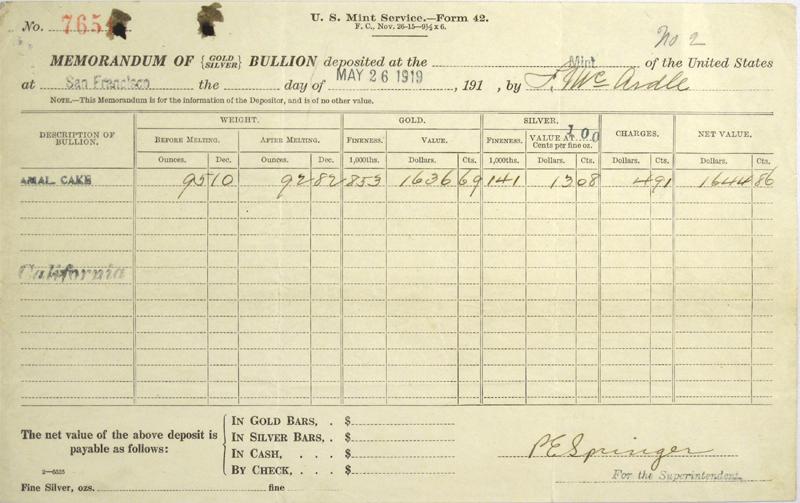 U. S. Mint Service.—Form 42.
F. C., Nov. 26-15—9½x6.
No. 765
No 2
MEMORANDUM OF {GOLD SILVER} BULLION deposited at the Mint of the United States
at San Francisco the day of MAY 26 1919, 191 , by J. McArdle
NOTE.—This Memorandum is for the information of the Depositor, and is of no other value.
DESCRIPTION OF BULLION. WEIGHT. GOLD. SILVER. CHARGES. NET VALUE.
BEFORE MELTING. AFTER MELTING. FINENESS. VALUE. FINENESS. VALUE AT 100 Cents per fine oz.
Ounces. Dec. Ounces. Dec. 1,000ths. Dollars. Cts. 1,000ths. Dollars. Cts. Dollars. Cts. Dollars. Cts.
AMAL. CAKE 95 10 92 82 853 1636 69 141 13 08 4 91 1644 86
California
The net value of the above deposit is payable as follows:
IN GOLD BARS, . $
IN SILVER BARS, . $
IN CASH, . . . . $
BY CHECK, . . . $
P E Springer
For the Superintendent.
2—6525
Fine Silver, ozs. fine